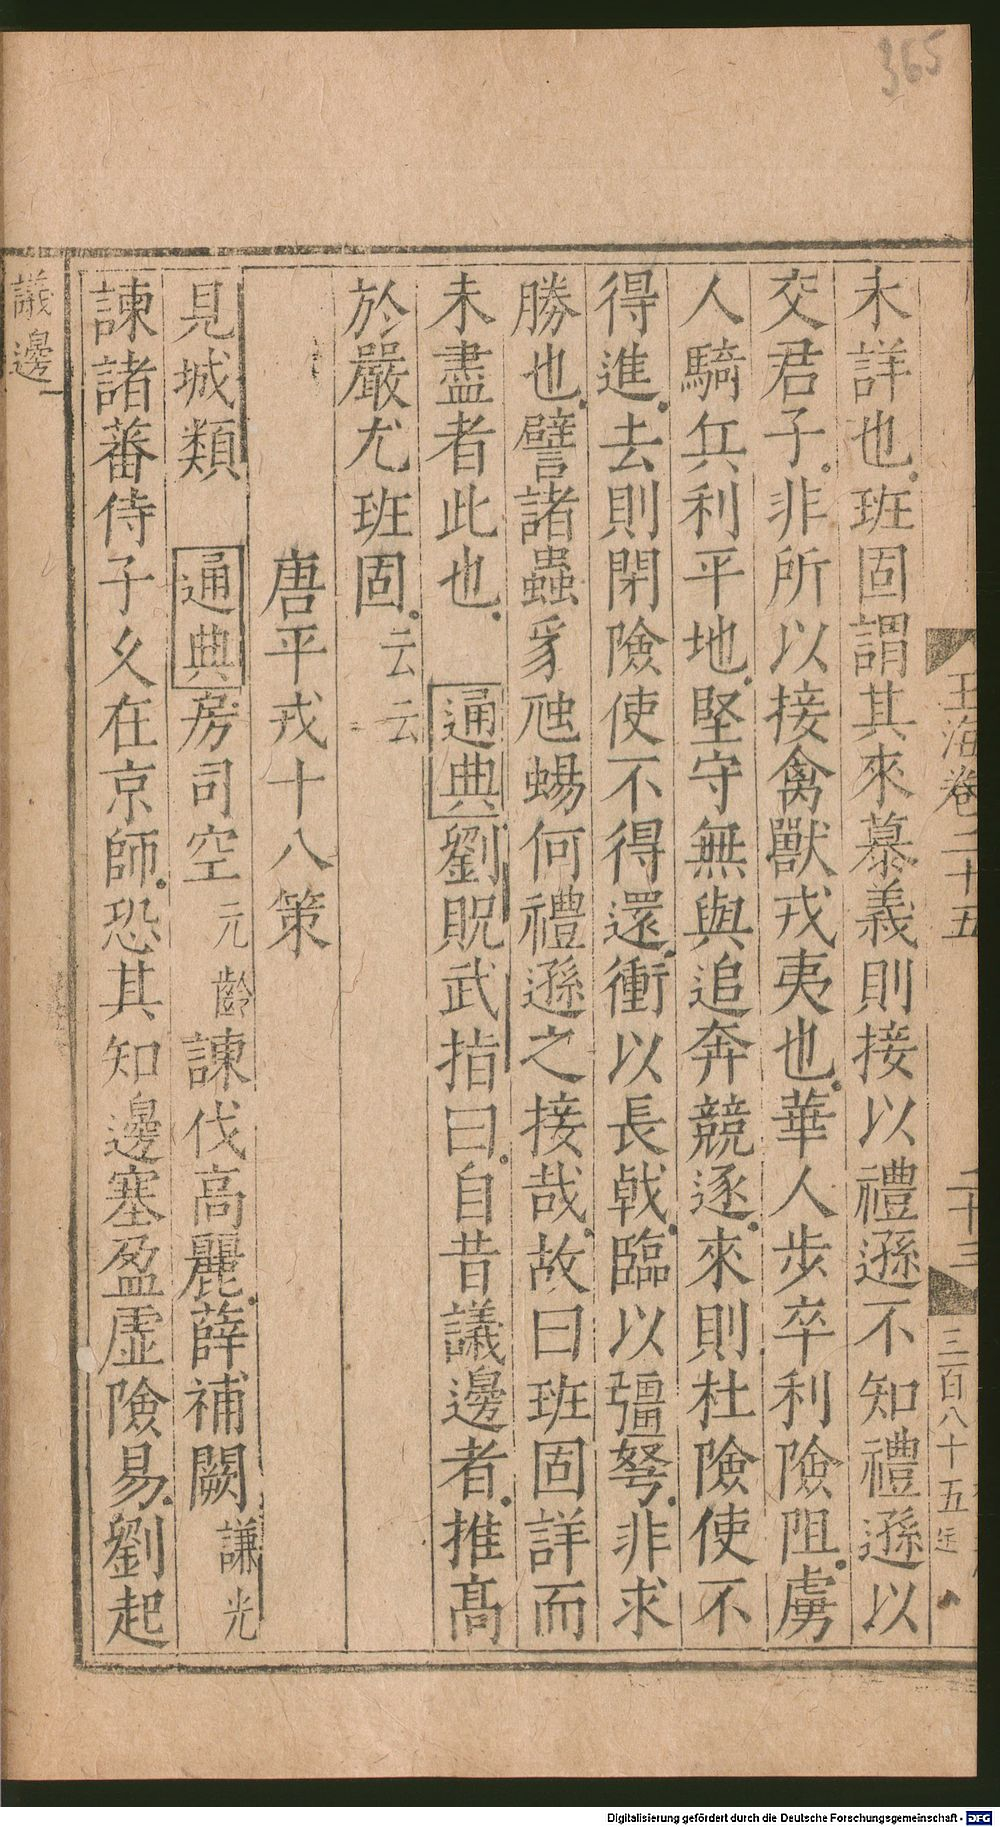 365
玉海卷二十五
二十三
三百八十五
未詳也班固謂其來慕義則接以禮遜不知禮遜以
交君子非所以接禽獸戎夷也華人步卒利險阻虜
人騎兵利平地堅守無與追奔競逐來則杜險使不
得進去則閉險使不得還衝以長戟臨以彊弩非求
勝也譬諸蟲豸虺蜴何禮遜之接哉故曰班固詳而
未盡者此也通典劉貺武指曰自昔議邊者推高
於嚴尤班固云云
唐平戎十八策
見城類通典房司空元齡諫伐高麗薛補闕謙光
諫諸蕃侍子久在京師恐其知邊塞盈虛險易劉起
議邊
Digitalisierung gefördert durch die Deutsche Forschungsgemeinschaft - DFG